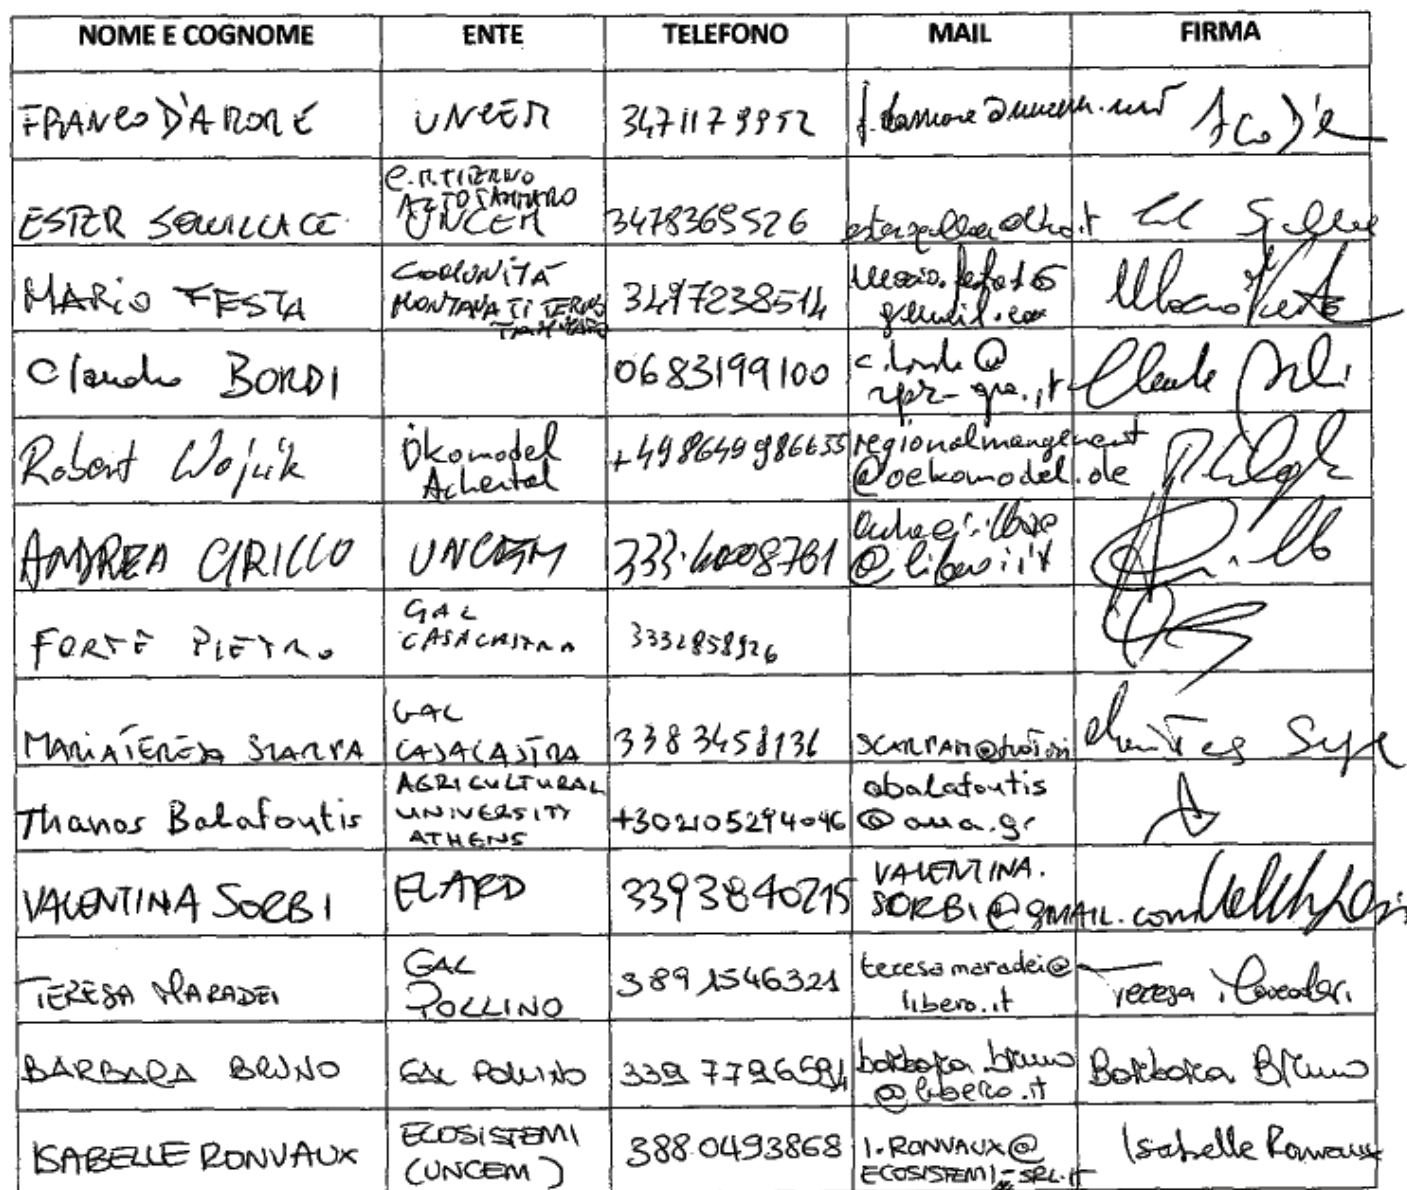 NOME E COGNOME ENTE TELEFONO MAIL FIRMA
FRANCO D'AMORE UNCEM 3471179952
ESTER SQUILLACE UNCEM 3478369526
MARIO FESTA COMUNITÀ MONTANA 3497238514
Claudio BORDI 0683199100
Robert Wojcik Ökomodel Achental +498649986655 regionalmangement @oekomodel.de
ANDREA CIRILLO UNCEM @libero.it
FORTE PIETRO GAL CASACASTRA 3332858926
MARIATERESA SCARPA GAL CASACASTRA 3383458136
Thanos Balafoutis AGRICULTURAL UNIVERSITY ATHENS +302105294046 abalafoutis @aua.gr
VALENTINA SORBI ELARD 3393840215 VALENTINA. SORBI@GMAIL.com
TERESA MARADEI GAL POLLINO 3891546321 teresamaradei@ libero.it Teresa Maradei
BARBARA BRUNO GAL POLLINO 339 7796594 barbara.bruno @libero.it Barbara Bruno
ISABELLE RONVAUX ECOSISTEMI (UNCEM) 3880493868 I.RONVAUX@ ECOSISTEMI-SRL.it Isabelle Ronvaux